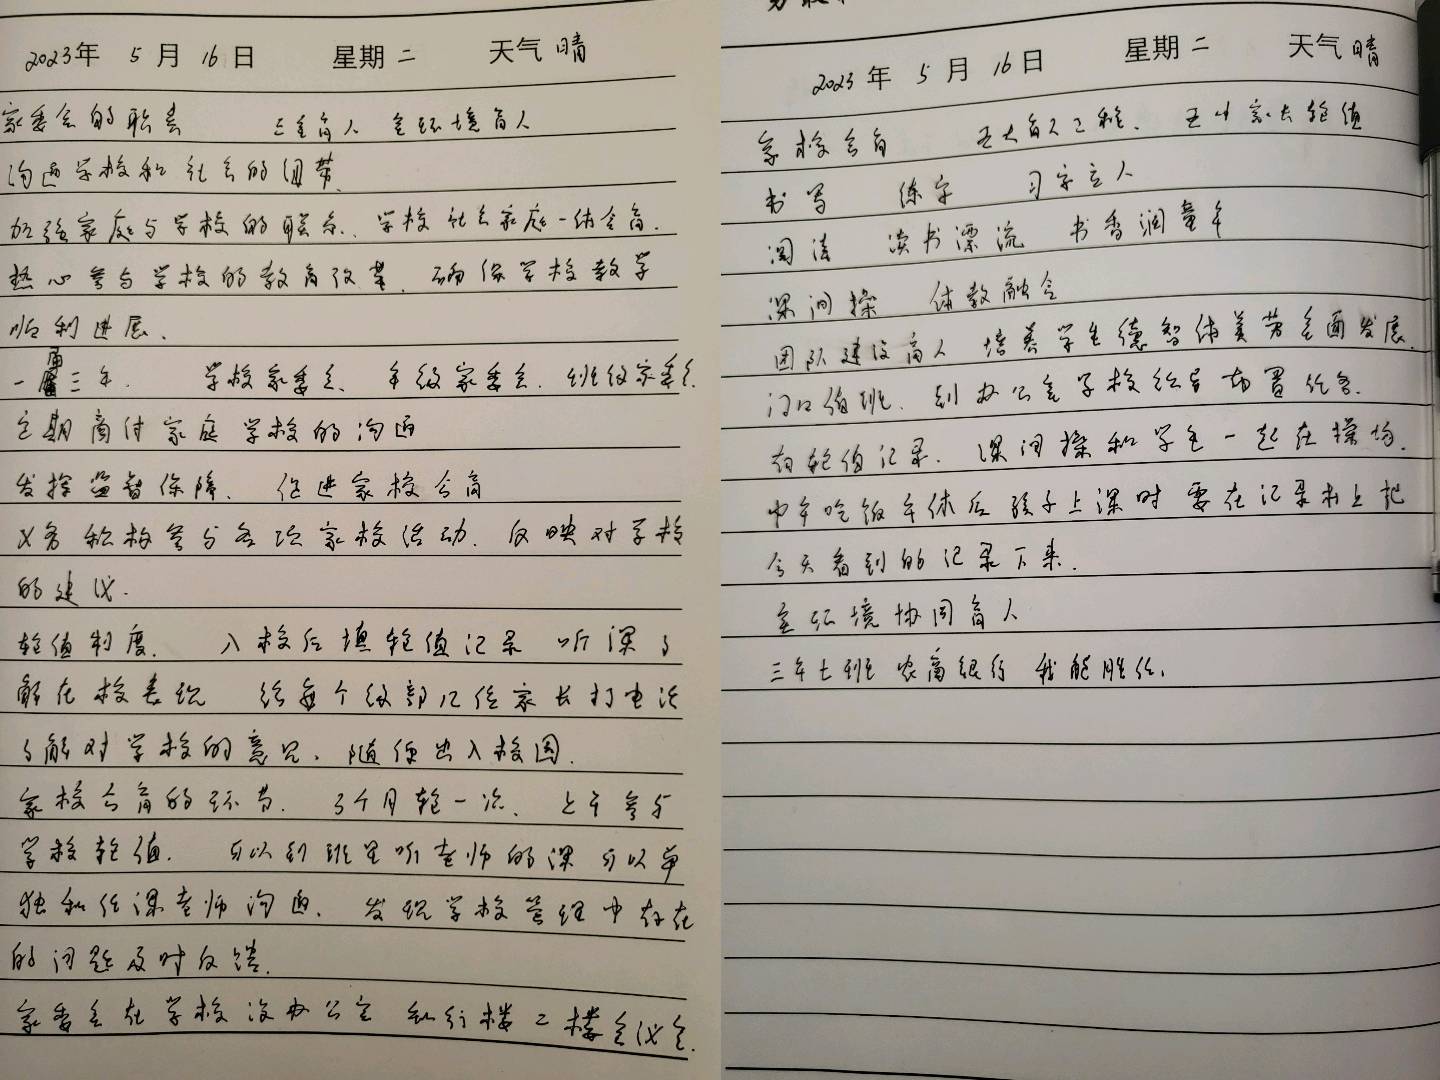 2023年 5月 16日 星期二 天气 晴
家委会的职责 三全育人 全环境育人
沟通学校和社会的纽带.
加强家庭与学校的联系. 学校社会家庭一体合育.
热心参与学校的教育改革. 确保学校教学
顺利进展.
一届三年. 学校家委会. 年级家委会. 班级家委会.
定期商讨家庭学校的沟通
发挥监督保障. 促进家校合育
义务 积极参与各项家校活动. 反映对学校
的建议.
轮值制度. 入校后填轮值记录 听课了
解在校表现 给每个级部几位家长打电话
了解对学校的意见. 随便出入校园.
家校合育的环节. 3个月轮一次. 上午参与
学校轮值. 可以到班里听老师的课 可以单
独和任课老师沟通. 发现学校管理中存在
的问题及时反馈.
家委会在学校设办公室 知行楼二楼会议室.
2023年 5月 16日 星期二 天气 晴
家校合育 五大育人工程. 五十家长轮值
书写 练字 习字立人
阅读 读书漂流 书香润童年
课间操 体教融合
团队建设育人 培养学生德智体美劳全面发展.
门口值班. 到办公室学校领导布置任务.
有轮值记录. 课间操和学生一起在操场.
中午吃饭午休后 孩子上课时 要在记录本上把
今天看到的记录下来.
全环境协同育人
三年七班 农商银行 我能胜任.